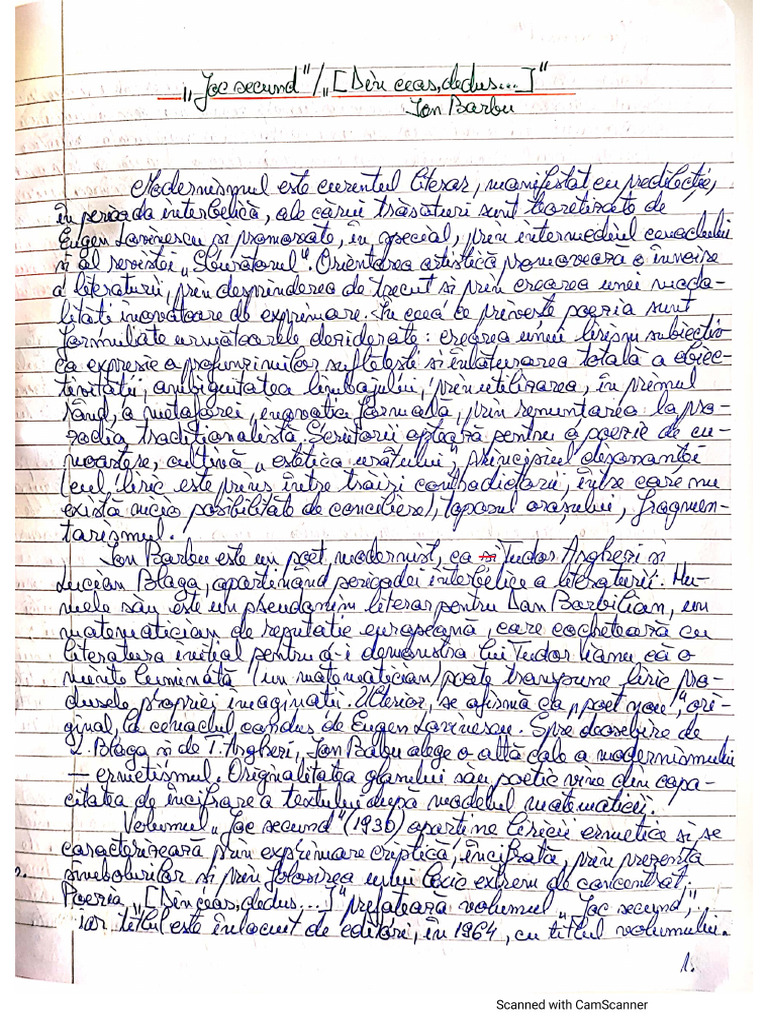 „Joc secund"/„[Din ceas, dedus...]"
Ion Barbu
Modernismul este curentul literar, manifestat cu predilecție,
în perioada interbelică, ale cărui trăsături sunt teoretizate de
Eugen Lovinescu și promovate, în special, prin intermediul cenaclului
și al revistei „Sburătorul". Orientarea artistică promovează o înnoire
a literaturii, prin desprinderea de trecut și prin crearea unei moda-
lități inovatoare de exprimare. În ceea ce privește poezia sunt
formulate următoarele deziderate: crearea unui lirism subiectiv
ca expresie a profunzimilor sufletești și înlăturarea totală a obiec-
tivității, ambiguitatea limbajului, prin utilizarea, în primul
rând, a metaforei, inovația formală, prin renunțarea la pro-
zodia tradiționalistă. Scriitorii optează pentru o poezie de cu-
noaștere, cultivă „estetica urâtului", principiul disonanței
(eul liric este prins între trăiri contradictorii, între care nu
există nicio posibilitate de conciliere), toposul orașului, fragmen-
tarismul.
Ion Barbu este un poet modernist, ca și Tudor Arghezi și
Lucian Blaga, aparținând perioadei interbelice a literaturii. Nu-
mele său este un pseudonim literar pentru Dan Barbilian, un
matematician de reputație europeană, care cochetează cu
literatura inițial pentru a-i demonstra lui Tudor Vianu că o
minte luminată (un matematician) poate transpune liric pro-
dusele propriei imaginații. Ulterior, se afirmă ca „poet nou", ori-
ginal, la cenaclul condus de Eugen Lovinescu. Spre deosebire de
L. Blaga și de T. Arghezi, Ion Barbu alege o altă cale a modernismului
– ermetismul. Originalitatea glasului său poetic vine din capa-
citatea de încifrare a textului după modelul matematicii.
Volumul „Joc secund" (1930) aparține liricii ermetice și se
caracterizează prin exprimare criptică, încifrată, prin prezența
simbolurilor și prin folosirea unui lexic extrem de concentrat.
Poezia „[Din ceas, dedus...]" prefațează volumul „Joc secund",
iar titlul este înlocuit de editori, în 1964, cu titlul volumului.
1.
Scanned with CamScanner